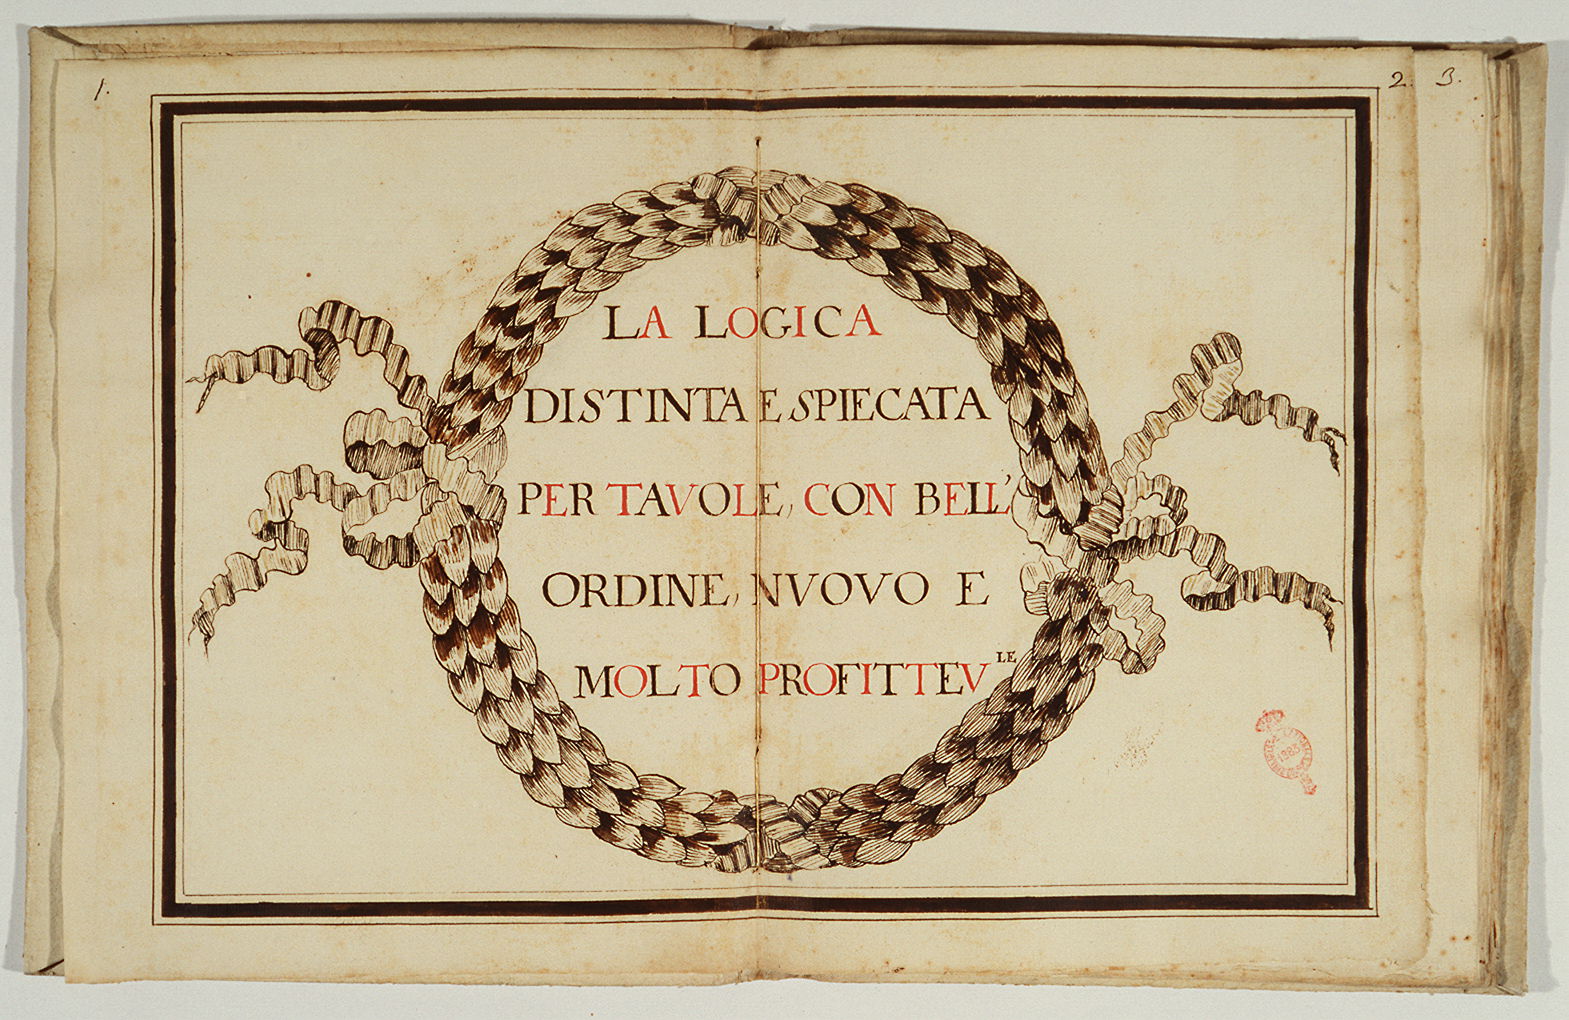 1.
2.
3.
LA LOGICA
DISTINTA E SPIECATA
PER TAVOLE, CON BELL'
ORDINE, NVOVO E
MOLTO PROFITTEV LE
1983